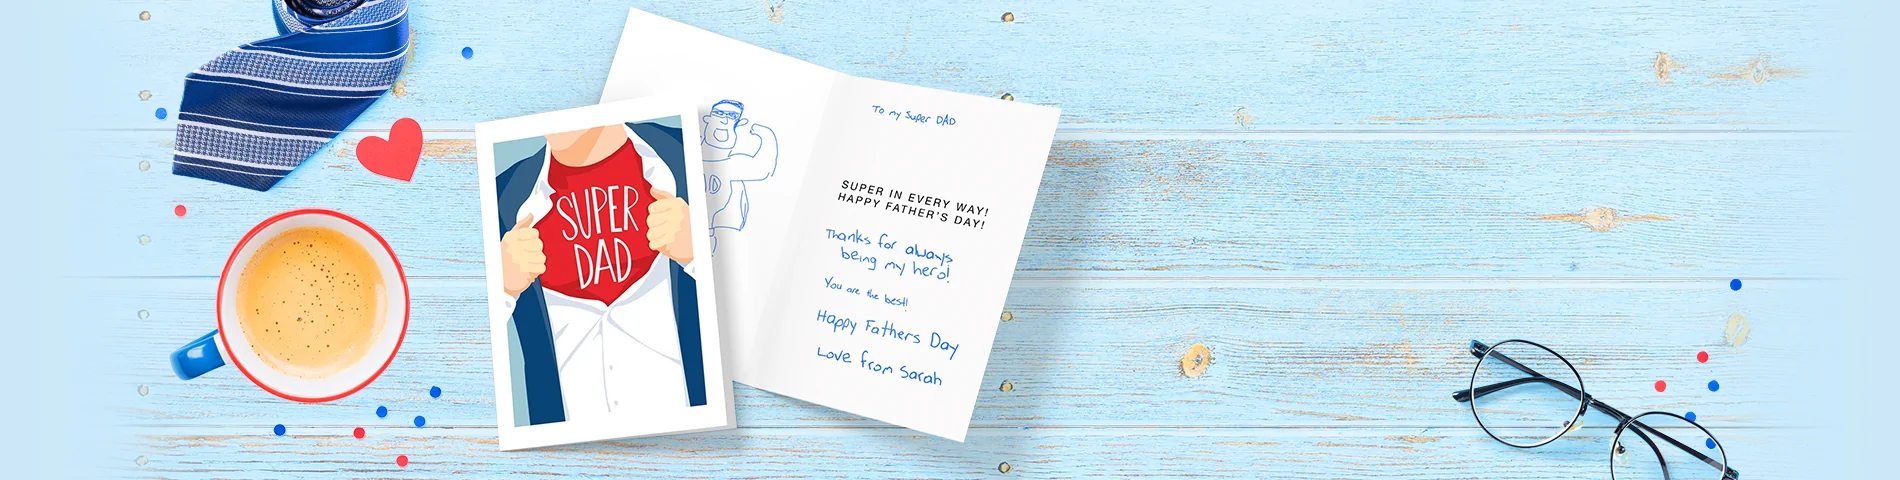 SUPER
DAD
To my Super DAD
SUPER IN EVERY WAY!
HAPPY FATHER'S DAY!
Thanks for always
being my hero!
You are the best!
Happy Fathers Day
Love from Sarah